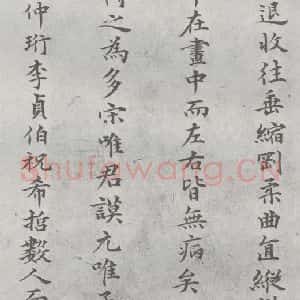 退收往垂縮剛柔曲直縱
在畫中而左右皆無病矣
之為多宗唯君謨尤唯
仲珩李貞伯祝希哲數人而
Shufawang.CN